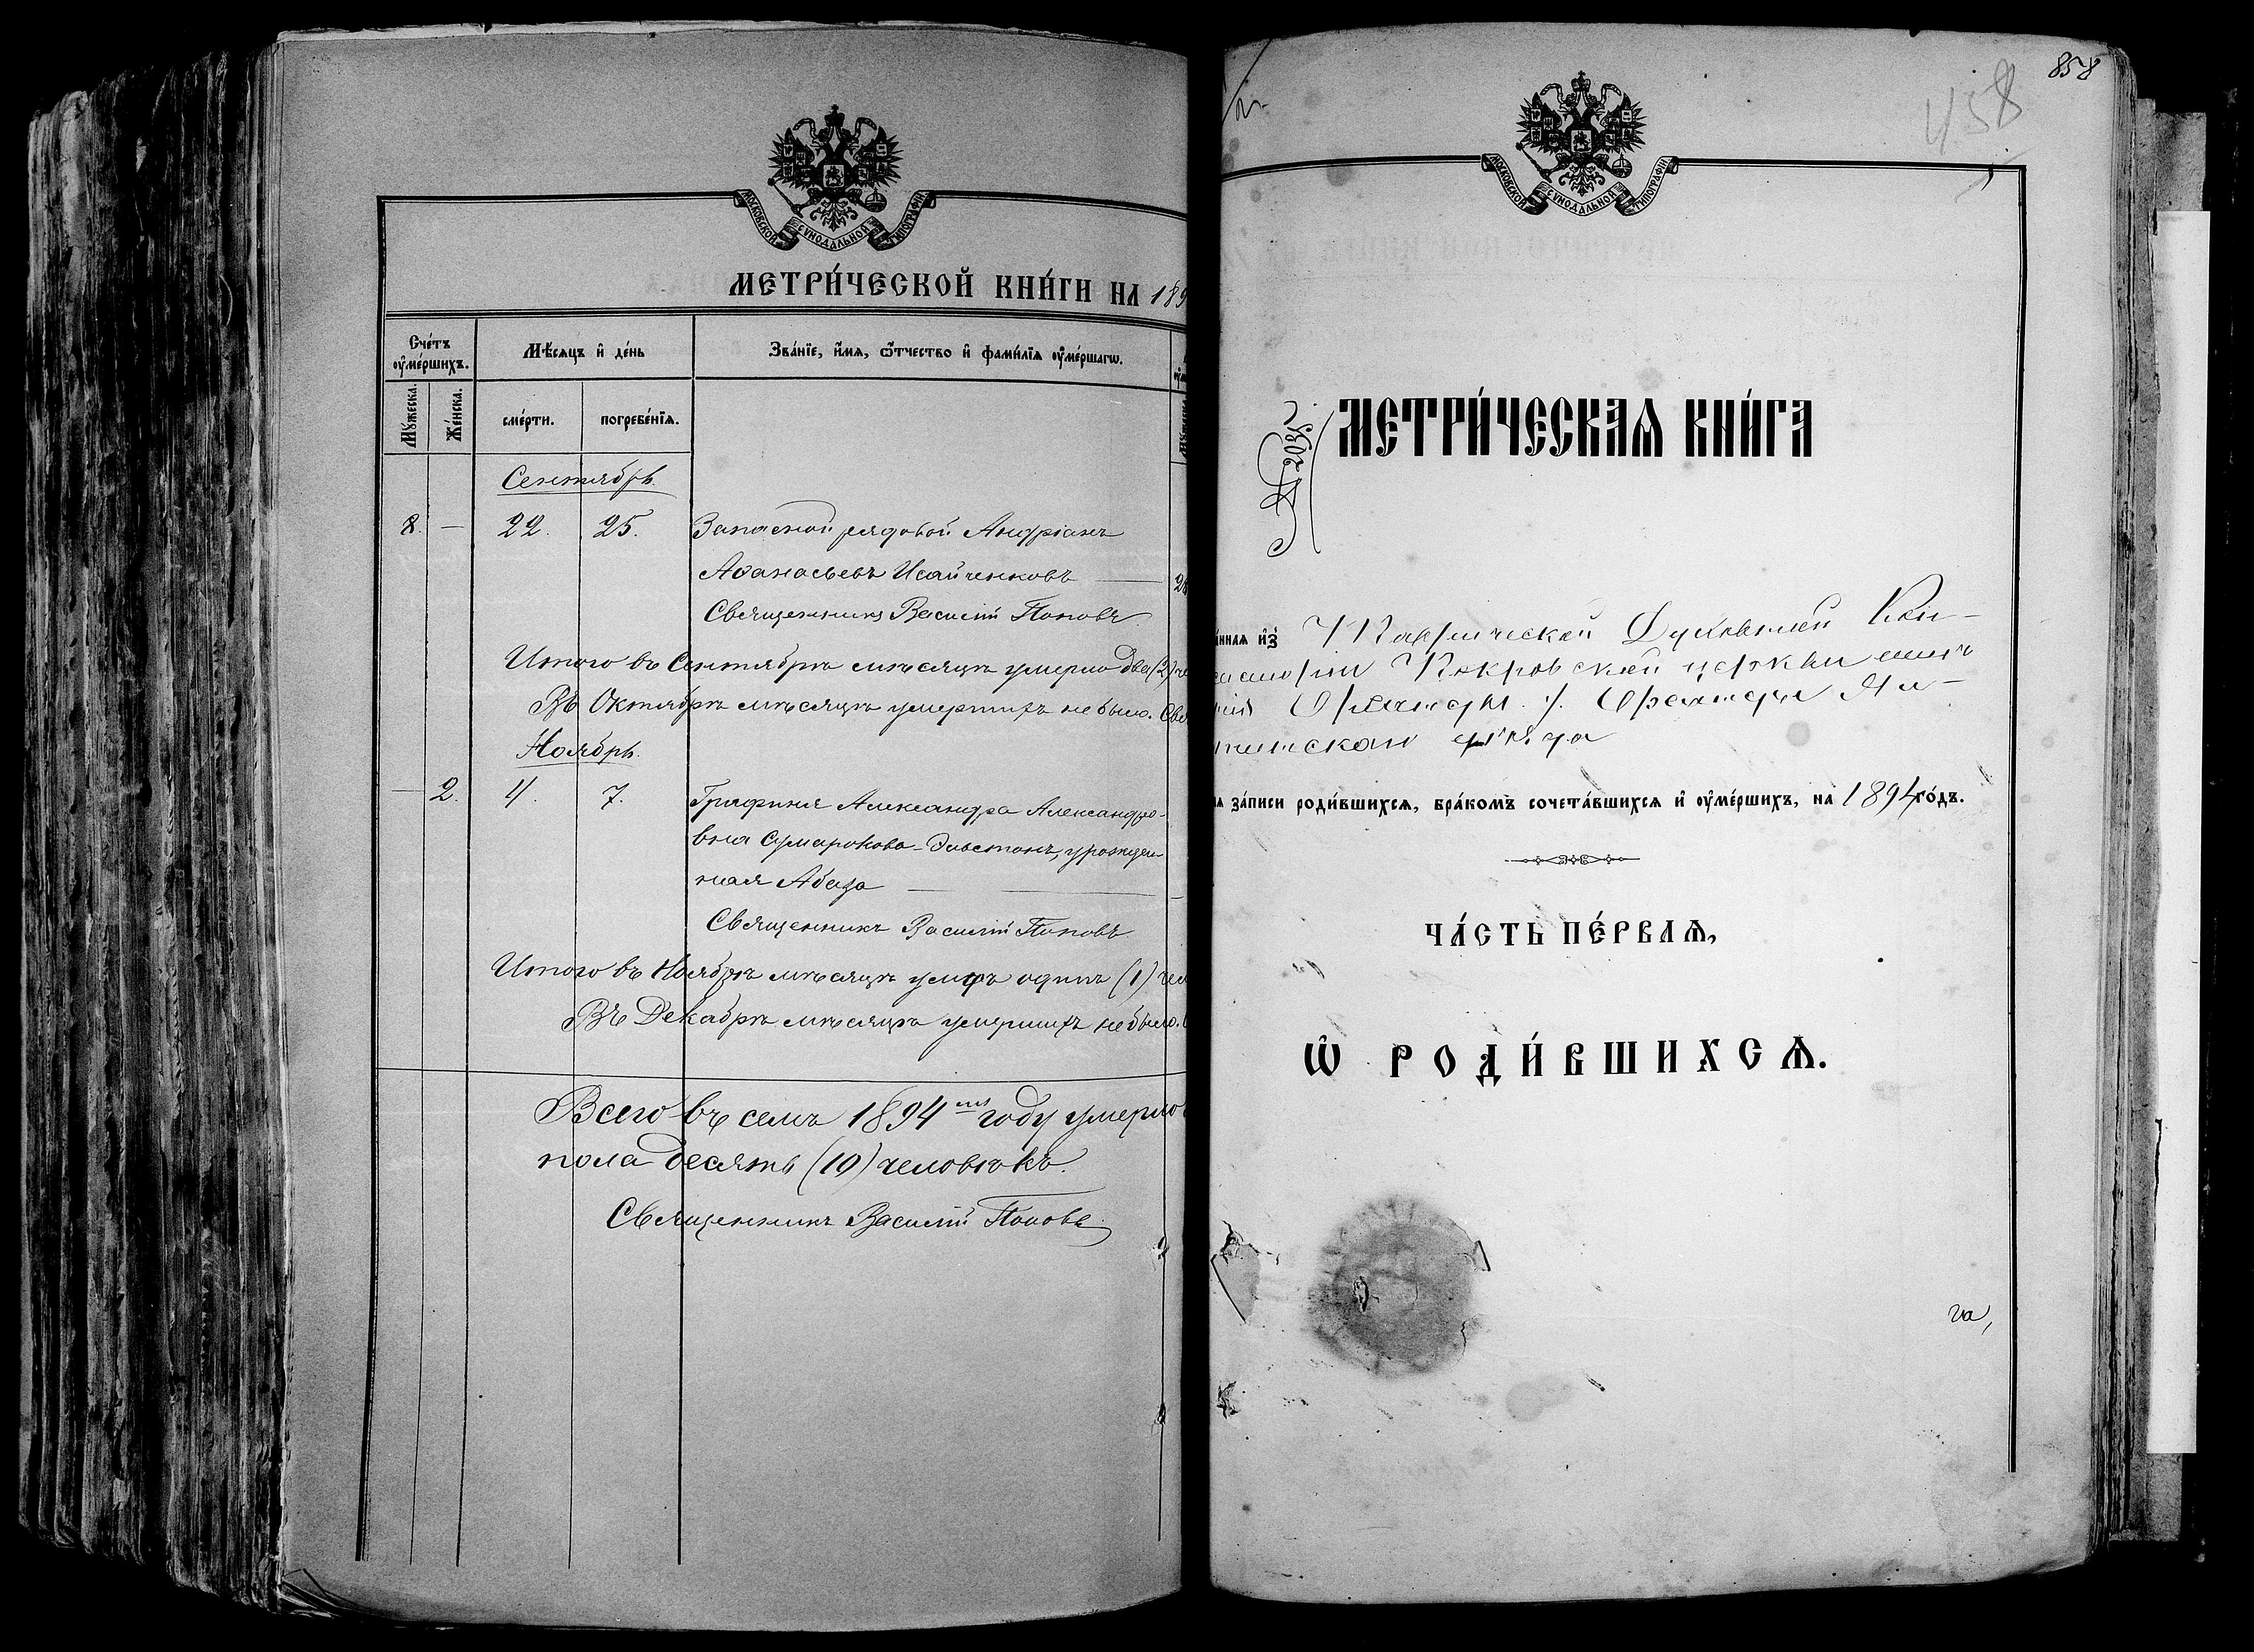 МОСКОВСКОЙ СѴНОДАЛЬНОЙ ТИПОГРАФІИ
МЕТРИ́ЧЕСКОЙ КНИ́ГИ НА 189
Сче́тъ ᲂу҆ме́ршихъ.
Мѣ́сяцъ и҆ де́нь
Зва́нїе, и҆́мя, ѻ҆́тчество и҆ фами́лїя ᲂу҆ме́ршагѡ.
Му́жеска.
Же́нска.
сме́рти.
погребе́нїя.
Сентябрь.
8. — 22. 25. Запасной рядовой Андріанъ
Аѳанасьевъ Исайченковъ — 28
Священникъ Василій Поповъ
Итого въ Сентябрѣ мѣсяцѣ умерло два (2) че
Въ Октябрѣ мѣсяцѣ умершихъ не было. Свя
Ноябрь.
— 2. 4. 7. Графиня Александра Александро-
вна Сумарокова-Эльстонъ, урожден-
ная Абаза —
Священникъ Василій Поповъ
Итого въ Ноябрѣ мѣсяцѣ умеръ одинъ (1) чел
Въ Декабрѣ мѣсяцѣ умершихъ не было.
Всего въ семъ 1894 мъ году умерло
пола десять (10) человѣкъ.
Священникъ Василій Поповъ
858
458
МОСКОВСКОЙ СѴНОДАЛЬНОЙ ТИПОГРАФІИ
МЕТРИ́ЧЕСКАѦ КНИ́ГА
а́нная и҆з̾ Таврической Духовной Кон-
систоріи Покровской церкви имѣ
нія Ореанды Ял-
тинскаго уѣзда
ля за́писи роди́вшихся, бра́комъ сочета́вшихся и҆ ᲂу҆ме́ршихъ, на 1894 го́дъ.
ЧА́СТЬ ПЕ́РВАѦ,
Ѡ҆ РОДИ́ВШИХСѦ.
га,